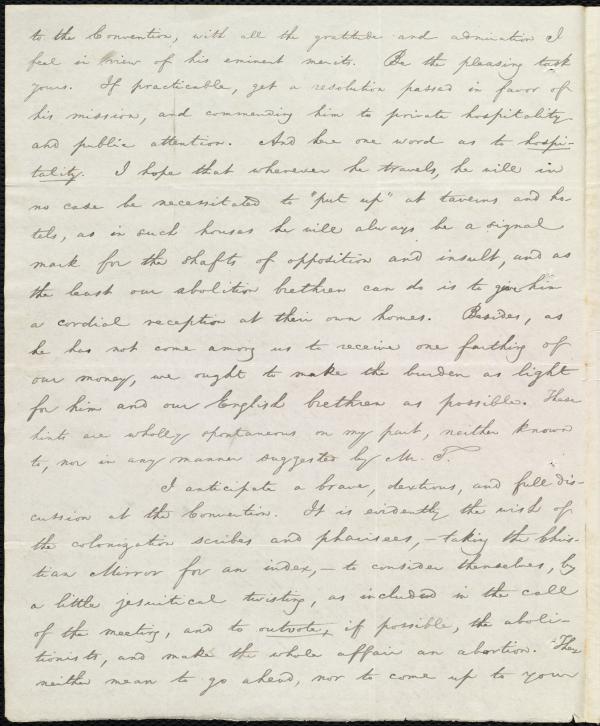 to the Convention, with all the gratitude and admiration I
feel in view of his eminent merits. Be the pleasing task
yours. If practicable, get a resolution passed in favor of
his mission, and commending him to private hospitality
and public attention. And here one word as to hospi-
tality. I hope that wherever he travels, he will in
no case be necessitated to "put up" at taverns and ho-
tels, as in such houses he will always be a signal
mark for the shafts of opposition and insult, and as
the least our abolition brethren can do is to give him
a cordial reception at their own homes. Besides, as
he has not come among us to receive one farthing of
our money, we ought to make the burden as light
for him and our English brethren as possible. These
hints are wholly spontaneous on my part, neither known
to, nor in any manner suggested by Mr. T.
I anticipate a brave, dextrous, and full dis-
cussion at the Convention. It is evidently the wish of
the colonization scribes and pharisees,—taking the Chris-
tian Mirror for an index,—to consider themselves, by
a little jesuitical twisting, as included in the call
of the meeting, and to outvote, if possible, the aboli-
tionists, and make the whole affair an abortion. They
neither mean to go ahead, nor to come up to your